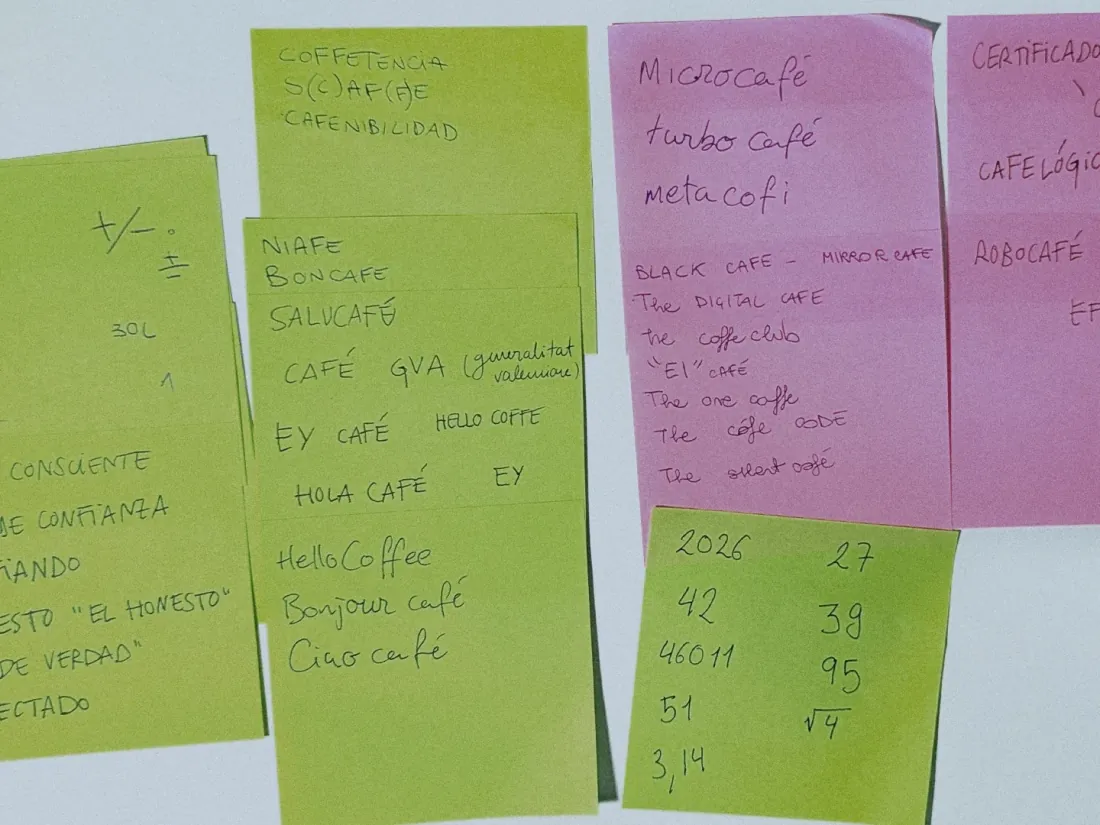 +/- .
±
30L
1
CONSCIENTE
DE CONFIANZA
IANDO
ESTO "EL HONESTO"
DE VERDAD"
ECTADO
COFFETENCIA
S(C)AF(F)E
CAFENIBILIDAD
NIAFE
BONCAFE
SALUCAFÉ
CAFÉ GVA (generalitat
valenciana)
EY CAFÉ HELLO COFFE
HOLA CAFÉ EY
HelloCoffee
Bonjour café
Ciao café
Microcafé
turbo café
meta cofi
BLACK CAFE - MIRROR CAFE
The DIGITAL CAFE
The coffe club
"EI" CAFÉ
The one caffe
The cofe CODE
The silent cafe
2026 27
42 39
46011 95
51 √4
3,14
CERTIFICADO
CAFELÓGIC
ROBOCAFÉ
EF